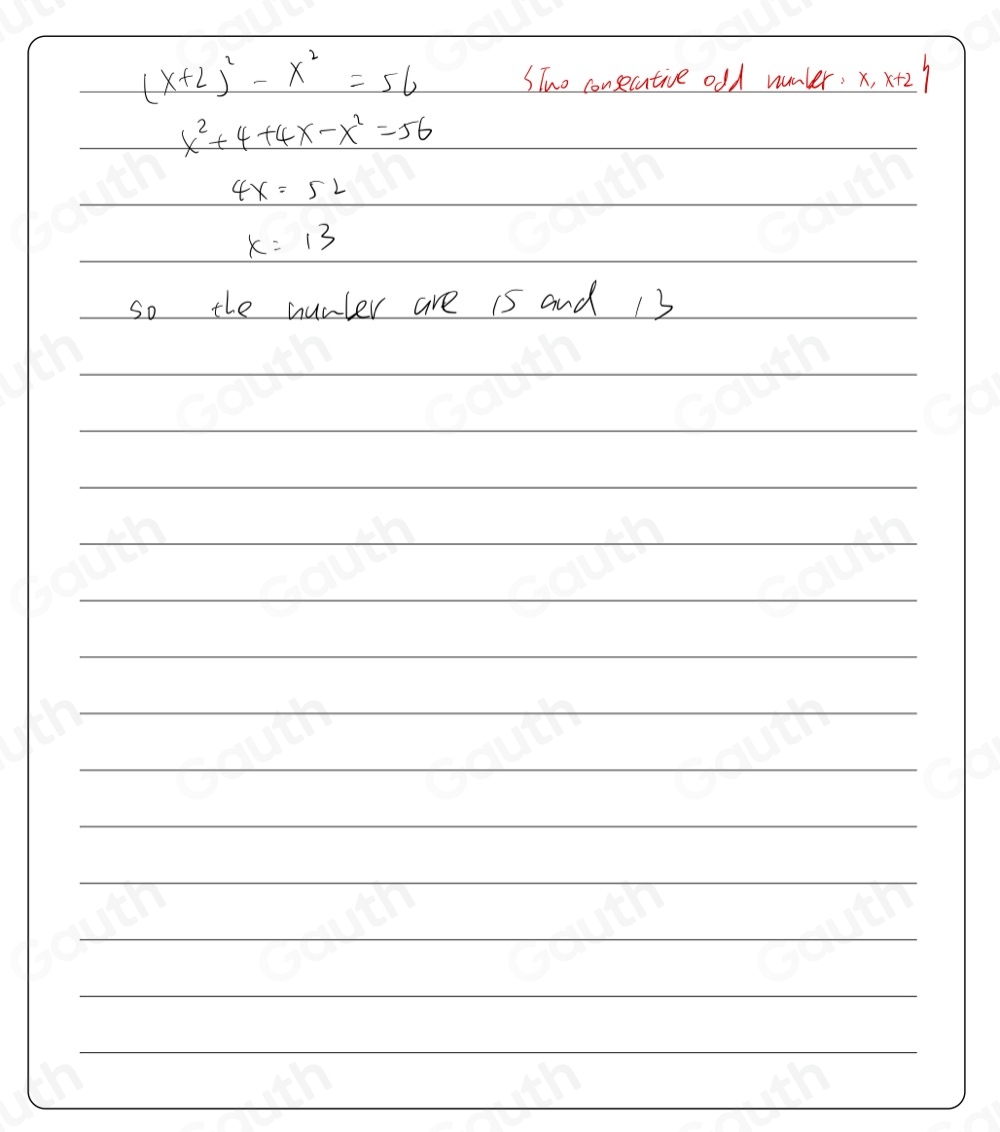 (x+2)² - x² = 56 {Two consecutive odd number: x, x+2}
x²+4+4x-x²=56
4x = 52
x = 13
so the number are 15 and 13